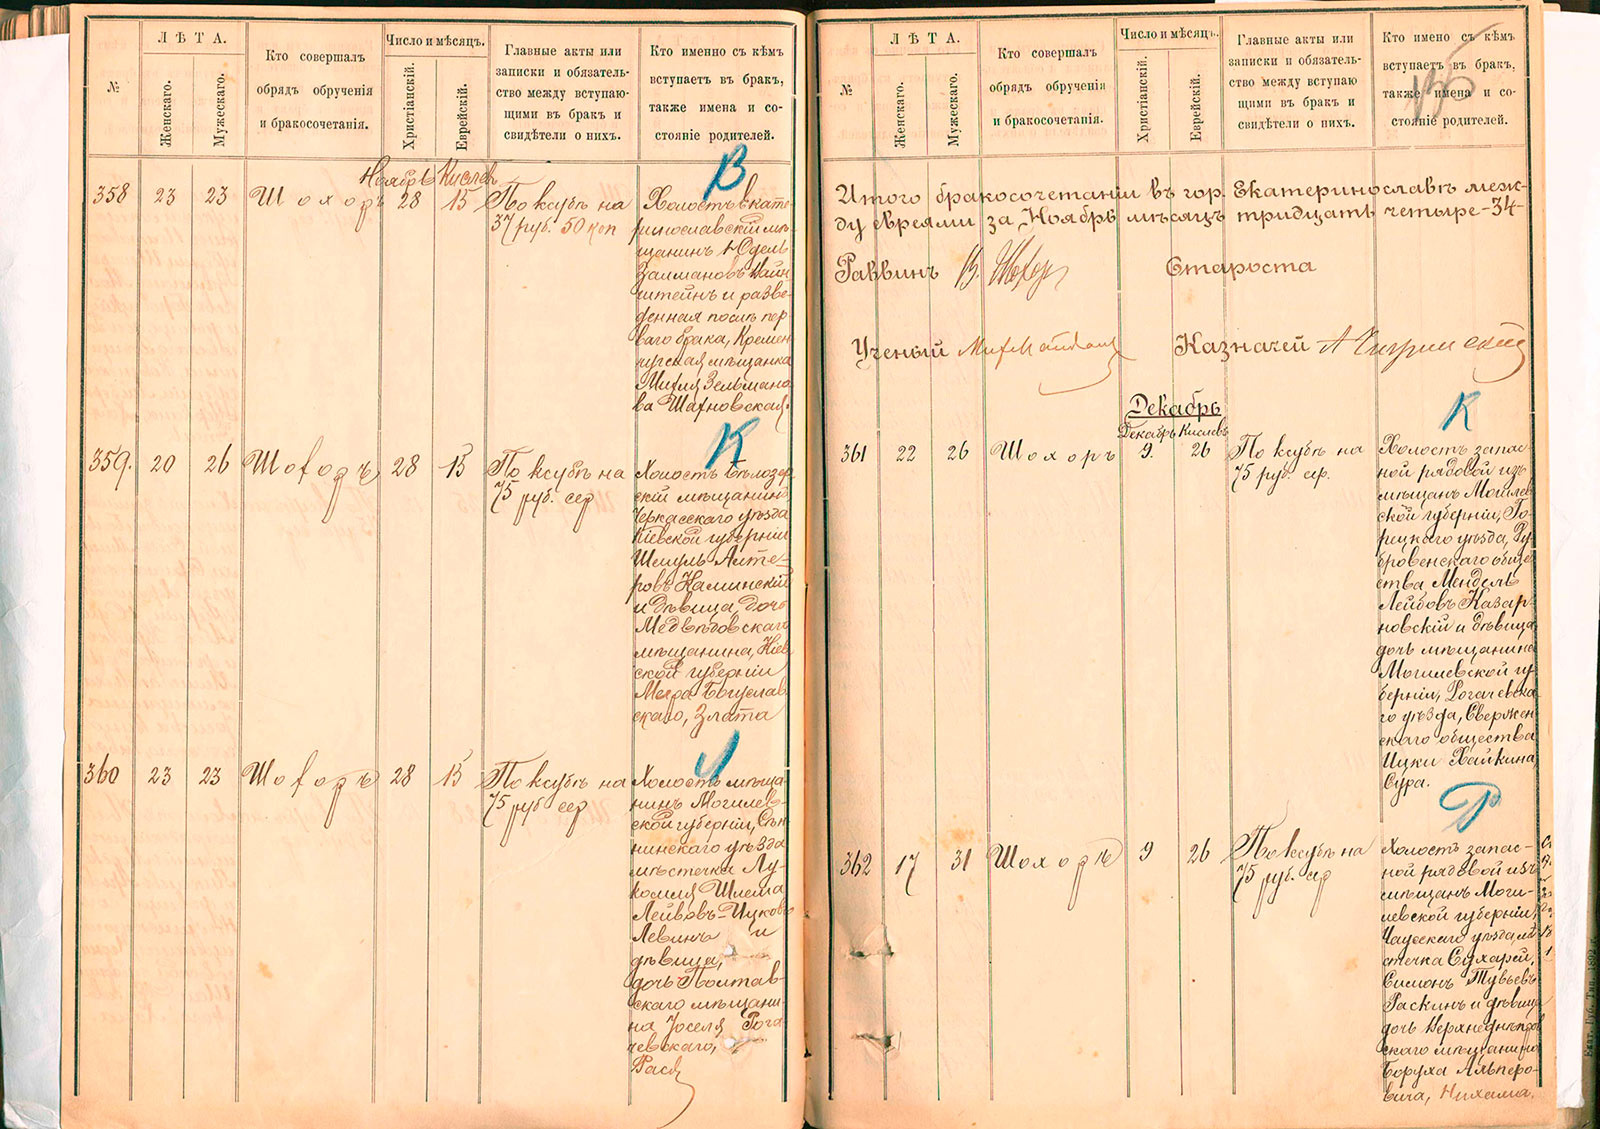 №
ЛѢТА.
Женскаго.
Мужескаго.
Кто совершалъ
обрядъ обрученія
и бракосочетанія.
Число и мѣсяцъ.
Христіанскій.
Еврейскій.
Главные акты или
записки и обязатель-
ство между вступаю-
щими въ бракъ и
свидѣтели о нихъ.
Кто именно съ кѣмъ
вступаетъ въ бракъ,
также имена и со-
стояніе родителей.
В
Ноябрь Кислевъ
358 23 23 Шохоръ 28 15
По ксубѣ на
37 руб. 50 коп
Холостъ Екате-
ринославскій мѣ-
щанинъ Юдель
Залмановъ Вайн
штейнъ и разве-
денная послѣ пер
ваго брака, Кремен
чугская мѣщанка
Михля Зельмано
ва Шахновская.
К
359. 20 26 Шохоръ 28 15
По ксубѣ на
75 руб. сер
Холостъ Бѣлозер
скій мѣщанинъ,
Черкасскаго уѣзда
Кіевской губерніи
Шмуль Алте-
ровъ Каминскій
и дѣвица, дочь
Медвѣдовскаго
мѣщанина, Кіев
ской губерніи
Меера Богуслав
скаго, Злата
Л
360 23 23 Шохоръ 28 15
По ксубѣ на
75 руб сер
Холостъ мѣща-
нинъ Могилев-
ской губерніи, Сѣн
нинскаго уѣзда
мѣстечка Лу-
комля Шлема
Лейбовъ-Ицковъ
Левинъ и
дѣвица,
дочь Полтав-
скаго мѣщани-
на Іоселя Рога
чевскаго,
Рася
№
ЛѢТА.
Женскаго.
Мужескаго.
Кто совершалъ
обрядъ обрученія
и бракосочетанія.
Число и мѣсяцъ.
Христіанскій.
Еврейскій.
Главные акты или
записки и обязатель-
ство между вступаю
щими въ бракъ и
свидѣтели о нихъ.
Кто имено съ кѣмъ
вступаетъ въ бракъ,
также имена и со-
стояніе родителей.
Итого бракосочетаній въ гор. Екатеринославѣ меж-
ду евреями за Ноябрь мѣсяцъ тридцать четыре-34-
Раввинъ В. Шохоръ Староста
Ученый Казначей
Декабрь
К
Декабрь Кислевъ
361 22 26 Шохоръ 9. 26
По ксубѣ на
75 руб. ср.
Холостъ запас-
ной рядовой изъ
мѣщанъ Могилев
ской губерніи, Го-
рецкаго уѣзда, Ду
бровенскаго обще
ства Мендель
Лейбовъ Казар-
новскій и дѣвица
дочь мѣщанина
Могилевской гу-
берніи, Рогачевска-
го уѣзда, Свержен
скаго общества
Ицки Хайкина
Сура.
Р
362 17 31 Шохоръ 9 26
По ксубѣ на
75 руб. ср
Холостъ запас-
ной рядовой изъ
мѣщанъ Моги-
левской губерніи,
Чаусскаго уѣзда, мѣ
стечка Сухарей,
Симонъ Тувьевъ
Раскинъ и дѣвица
дочь Верхнеднѣпров
скаго мѣщанина
Боруха Альперо-
вича, Нихама.
Екат. Губ. Тип.